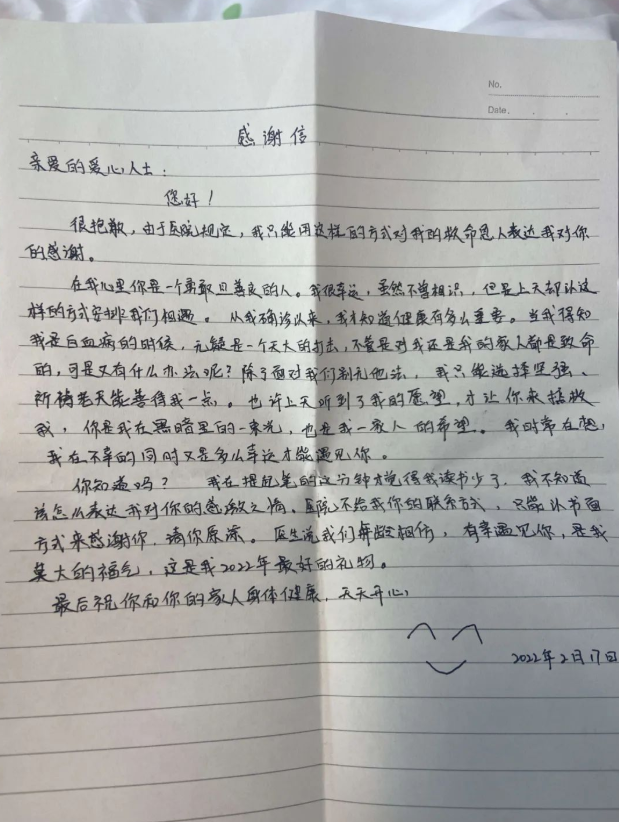 No.
Date.
感谢信
亲爱的爱心人士：
您好！
很抱歉，由于医院规定，我只能用这样的方式对我的救命恩人表达我对你
的感谢。
在我心里你是一个勇敢且善良的人。我很幸运，虽然不曾相识，但是上天却以这
样的方式安排我们相遇。从我确诊以来，我才知道健康有多么重要。当我得知
我是白血病的时候，无疑是一个天大的打击，不管是对我还是我的家人都是致命
的，可是又有什么办法呢？除了面对我们别无他法，我只能选择坚强、
祈祷老天能善待我一点。也许上天听到了我的愿望，才让你来拯救
我，你是我在黑暗里的一束光，也是我一家人的希望。我时常在想，
我在不幸的同时又是多么幸运才能遇见你。
你知道吗？我在提起笔的这分钟才觉得我读书少了，我不知道
该怎么表达我对你的感激之情。医院不给我你的联系方式，只能以书面
方式来感谢你，请你原谅。医生说我们年龄相仿，有幸遇见你，是我
莫大的福气，这是我2022年最好的礼物。
最后祝你和你的家人身体健康，天天开心
2022年2月17日